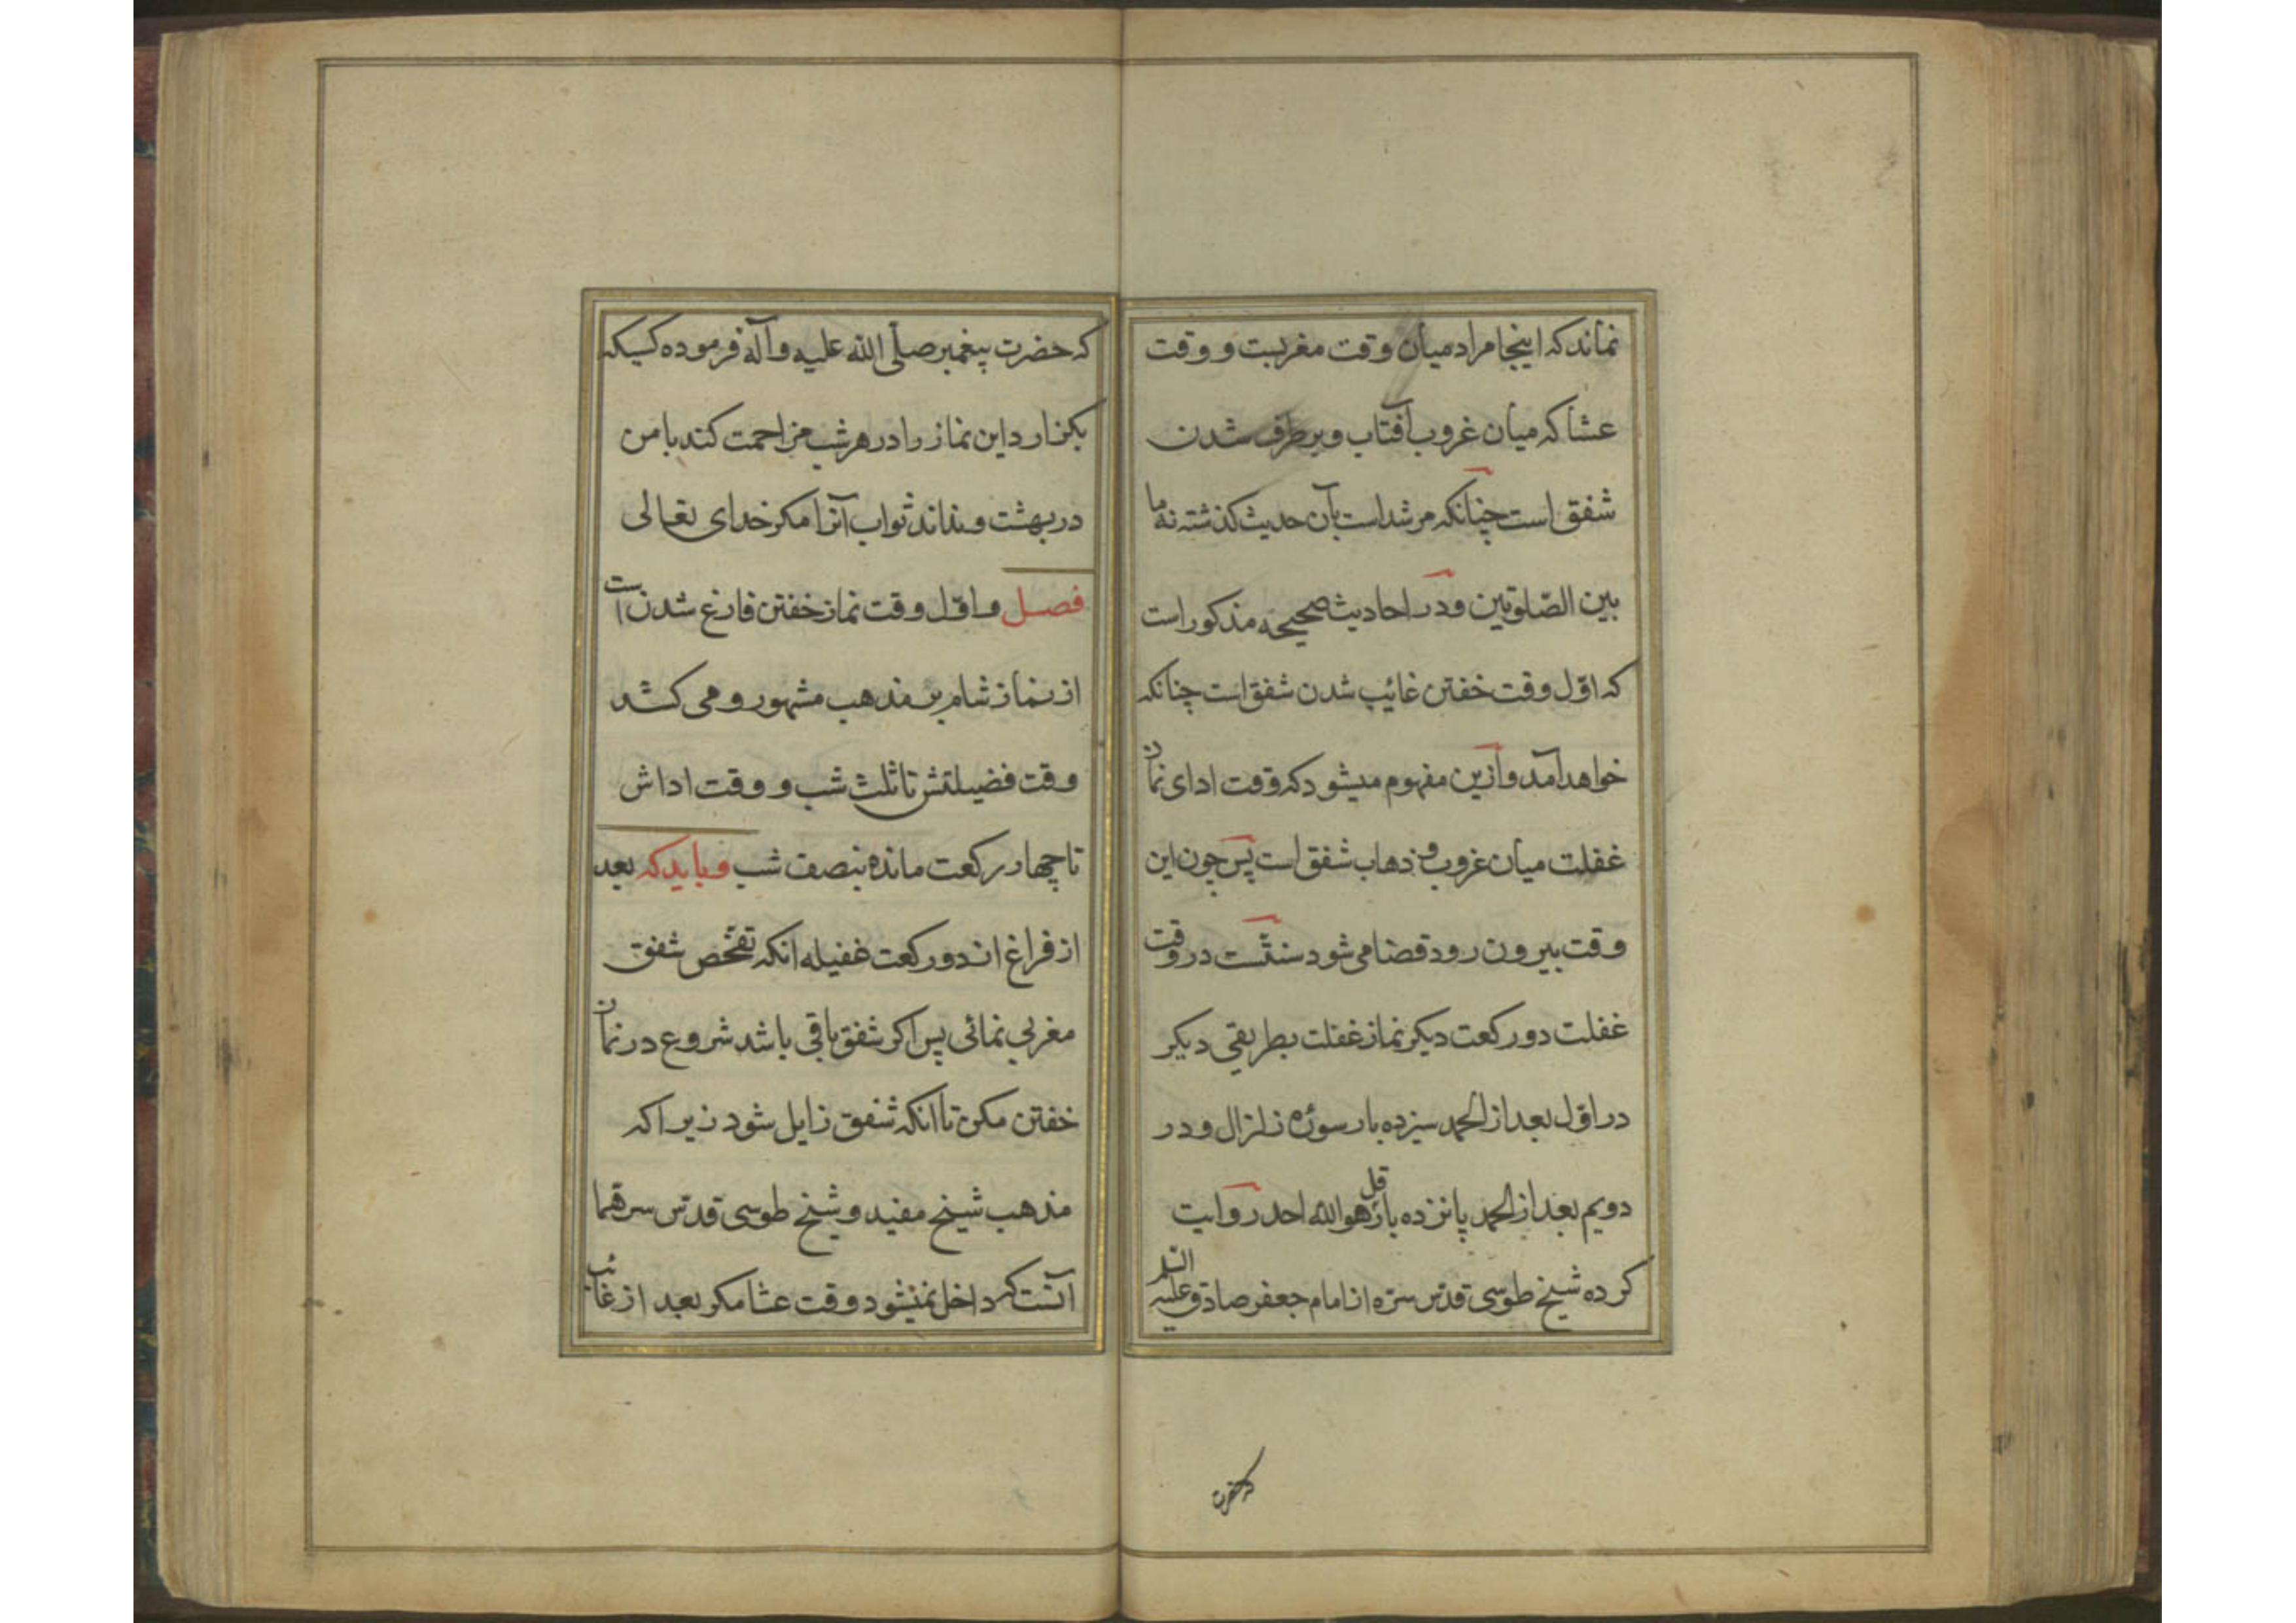 نماند که اینجا مراد میان وقت مغربست و وقت
عشا که میان غروب آفتاب و برطرف شدن
شفق است چنانکه مرشد است بآن حدیث کذشته نه ما
بین الصّلوتین و در احادیث صحیحه مذکور است
که اوّل وقت خفتن غائیب شدن شفق است چنانکه
خواهد آمد و ازین مفهوم میشود که وقت ادای نماز
غفلت میان غروب و ذهاب شفق است پس چون این
وقت بیرون رود قضا می شود سنّتست در وقت
غفلت دو رکعت دیکر نماز غفلت بطریقی دیکر
در اوّل بعد از الحمد سیزده بار سورهٔ زلزال و در
دویم بعد از الحمد پانزده بار قل هو الله احد روایت
کرده شیخ طوسی قدّس سرّه از امام جعفر صادق علیه السّلم
که حضرت
که حضرت پیغمبر صلّی اللّه علیه و آله فرموده کسیکه
بکزارد این نماز را در هر شب مزاحمت کند با من
در بهشت و نداند ثواب آنرا مکر خدای تعالی
فصل و اوّل وقت نماز خفتن فارغ شدن است
از نماز شام بر مذهب مشهور و می کشد
وقت فضیلتش تا ثلث شب و وقت اداش
تا چهار رکعت مانده بنصف شب و باید که بعد
از فراغ از دو رکعت غفیله انکه تفحّص شفق
مغربی نمائی پس اکر شفق باقی باشد شروع در نماز
خفتن مکن تا انکه شفق زایل شود زیرا که
مذهب شیخ مفید و شیخ طوسی قدّس سرّهما
آنست که داخل نمیشود وقت عشا مکر بعد از غائب